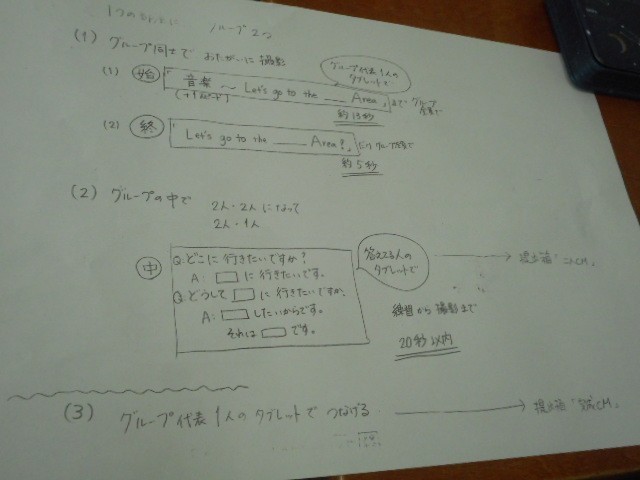 1つの グループ2つ
(1) グループ同士で おたがいに撮影
グループ代表1人の
タブレットで
(1) 始 音楽 ～ Let's go to the ___ Area, まで グループ
約15秒
(2) 終 Let's go to the ___ Area!,
約5秒
(2) グループの中で 2人・2人 になって
2人・1人
中 Q:どこに行きたいですか?
A: □に行きたいです。
Q:どうして□に行きたいですか。
A: □したいからです。
それは□です。
答える人の
タブレットで
練習から撮影まで
20秒以内
(3) グループ代表1人のタブレットで つなげる